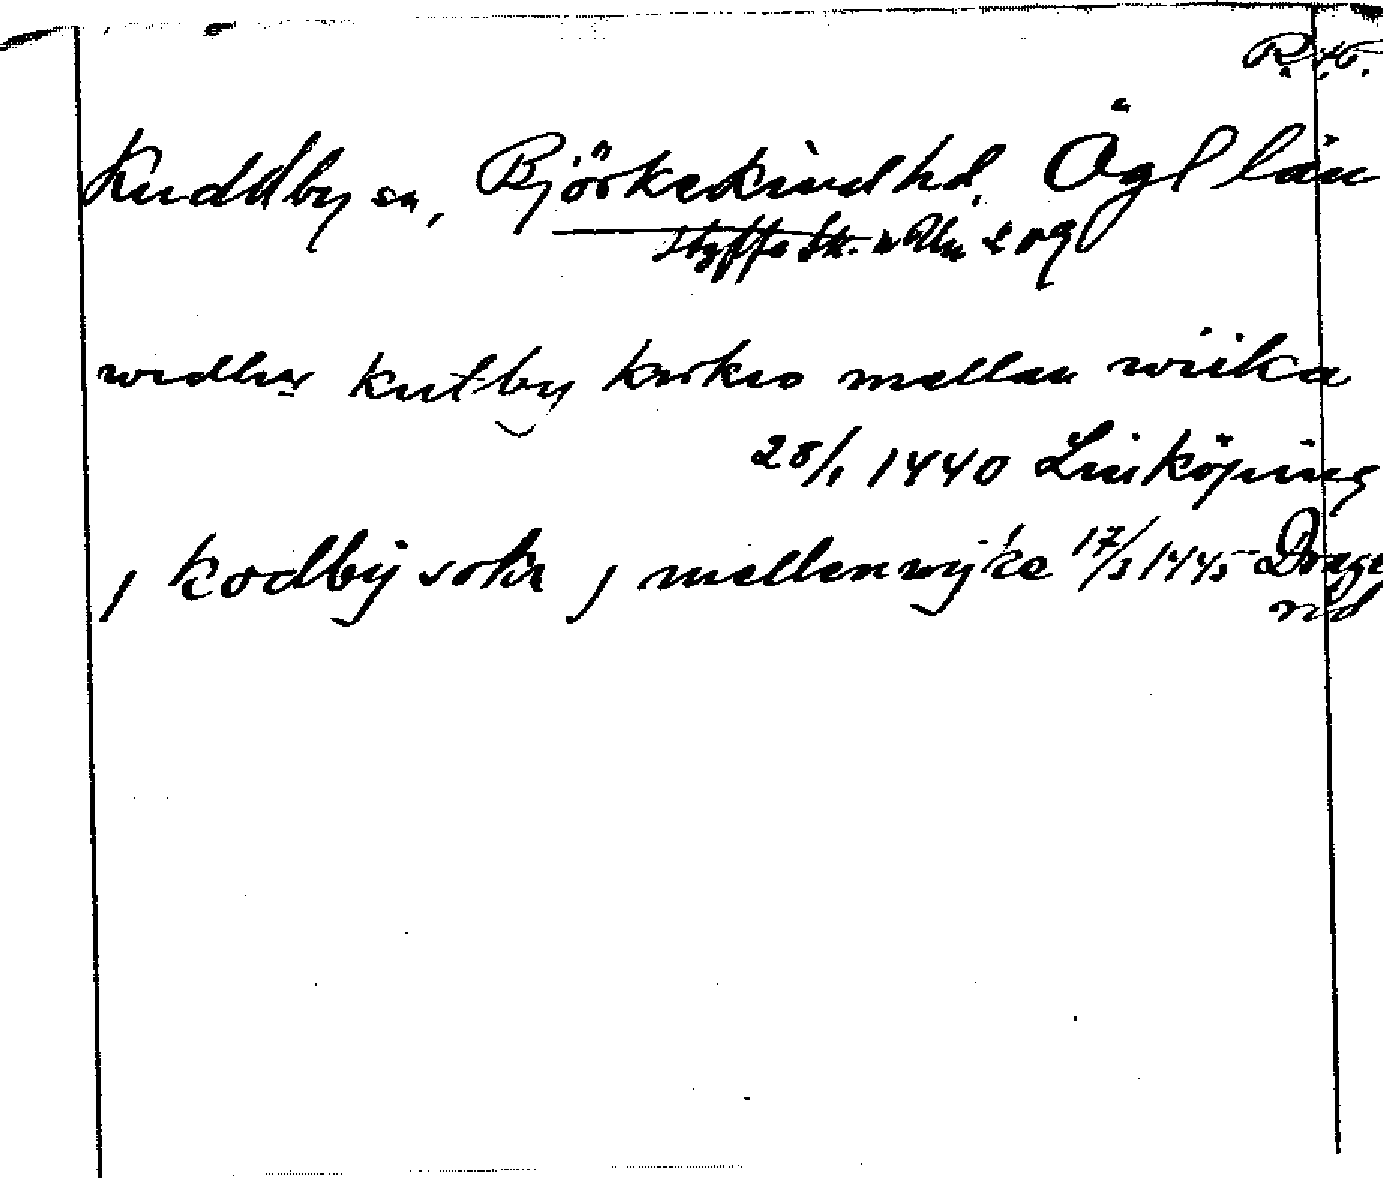 R. A.
Kuddby sn, Björkekind hd. Ögl län
Styffe Sk. u. Un 209
vidher kutby kirkio mellan wiika
28/1 1440 Linköping
j kodbÿ sokn j mellenwÿke 17/3 1445 Drage